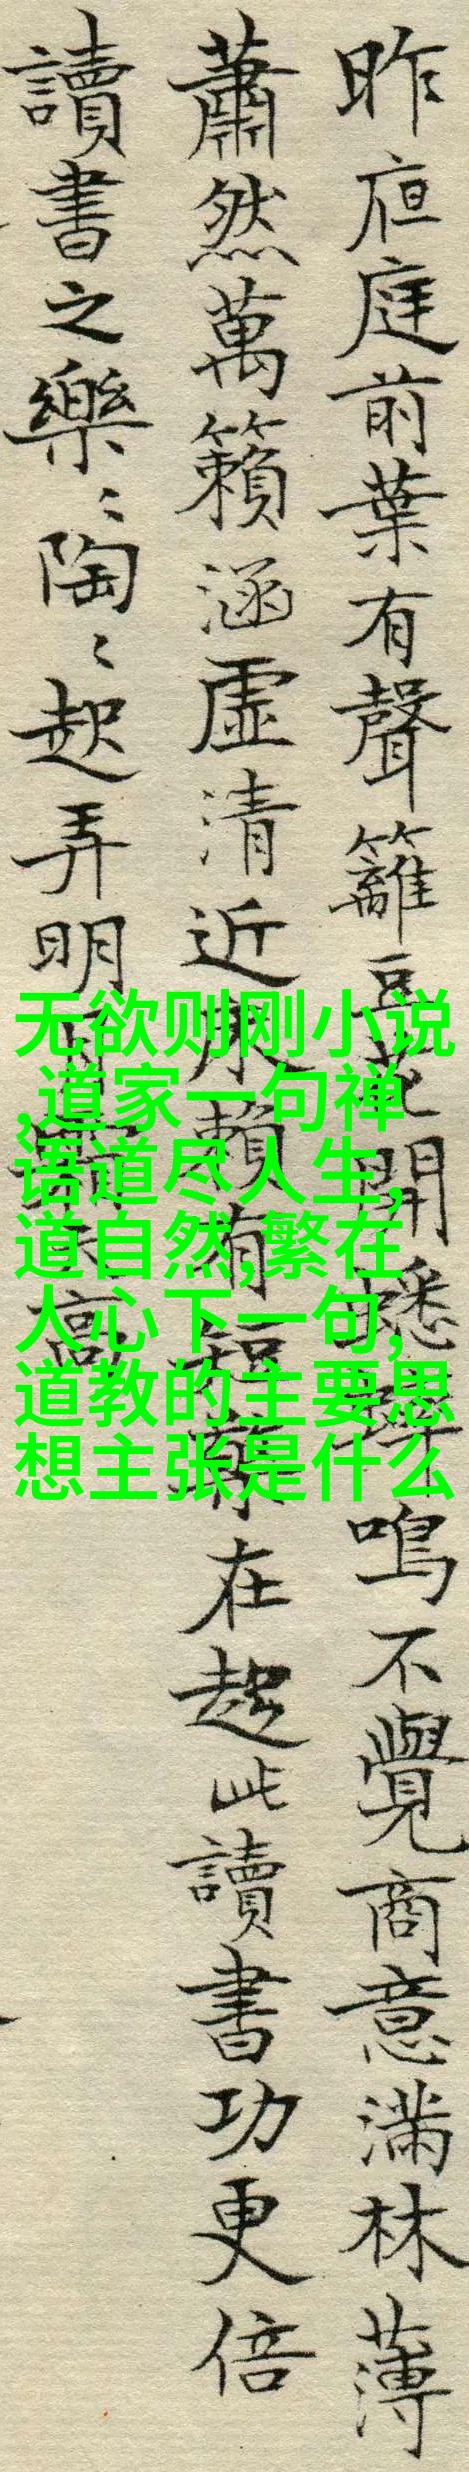 昨夜庭前葉有聲籬豆花開蟋蟀鳴不覺商意滿林薄
蕭然萬籟涵虛清近床賴有短檠在起此讀書功更倍
讀書之樂〻陶〻起弄明月霜天高
无欲则刚小说
,道家一句禅
语道尽人生,
道自然,繁在
人心下一句,
道教的主要思
想主张是什么